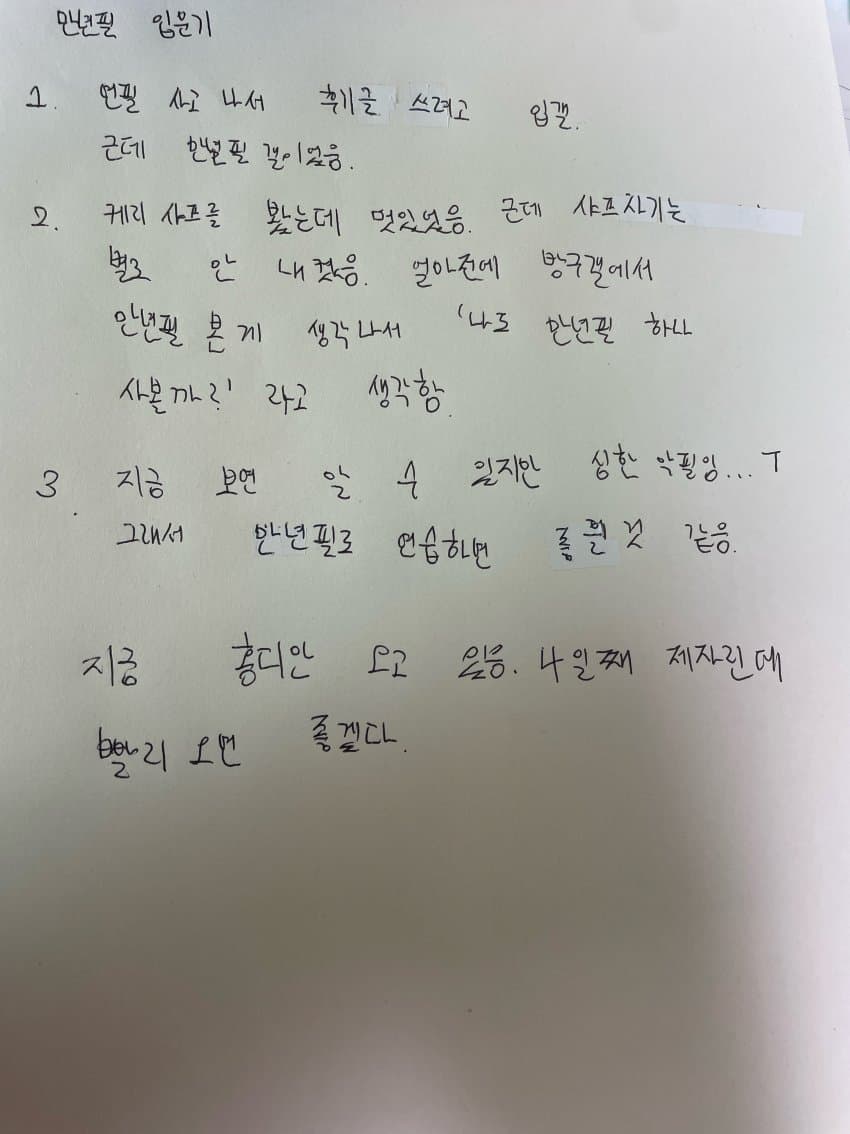 만년필 입문기
1. 연필 사고 나서 후기글 쓰려고 입갤.
근데 만년필 갤이었음.
2. 케리 샤프를 봤는데 멋있었음. 근데 샤프차기는
별로 안 내켰음. 얼마전에 방구갤에서
만년필 본 게 생각나서 '나도 만년필 하나
사볼까?' 라고 생각함.
3. 지금 보면 알 수 있지만 심한 악필임... ㅜ
그래서 만년필로 연습하면 좋을 것 같음.
지금 홍디안 오고 있음. 4일째 제자린데
빨리 오면 좋겠다.